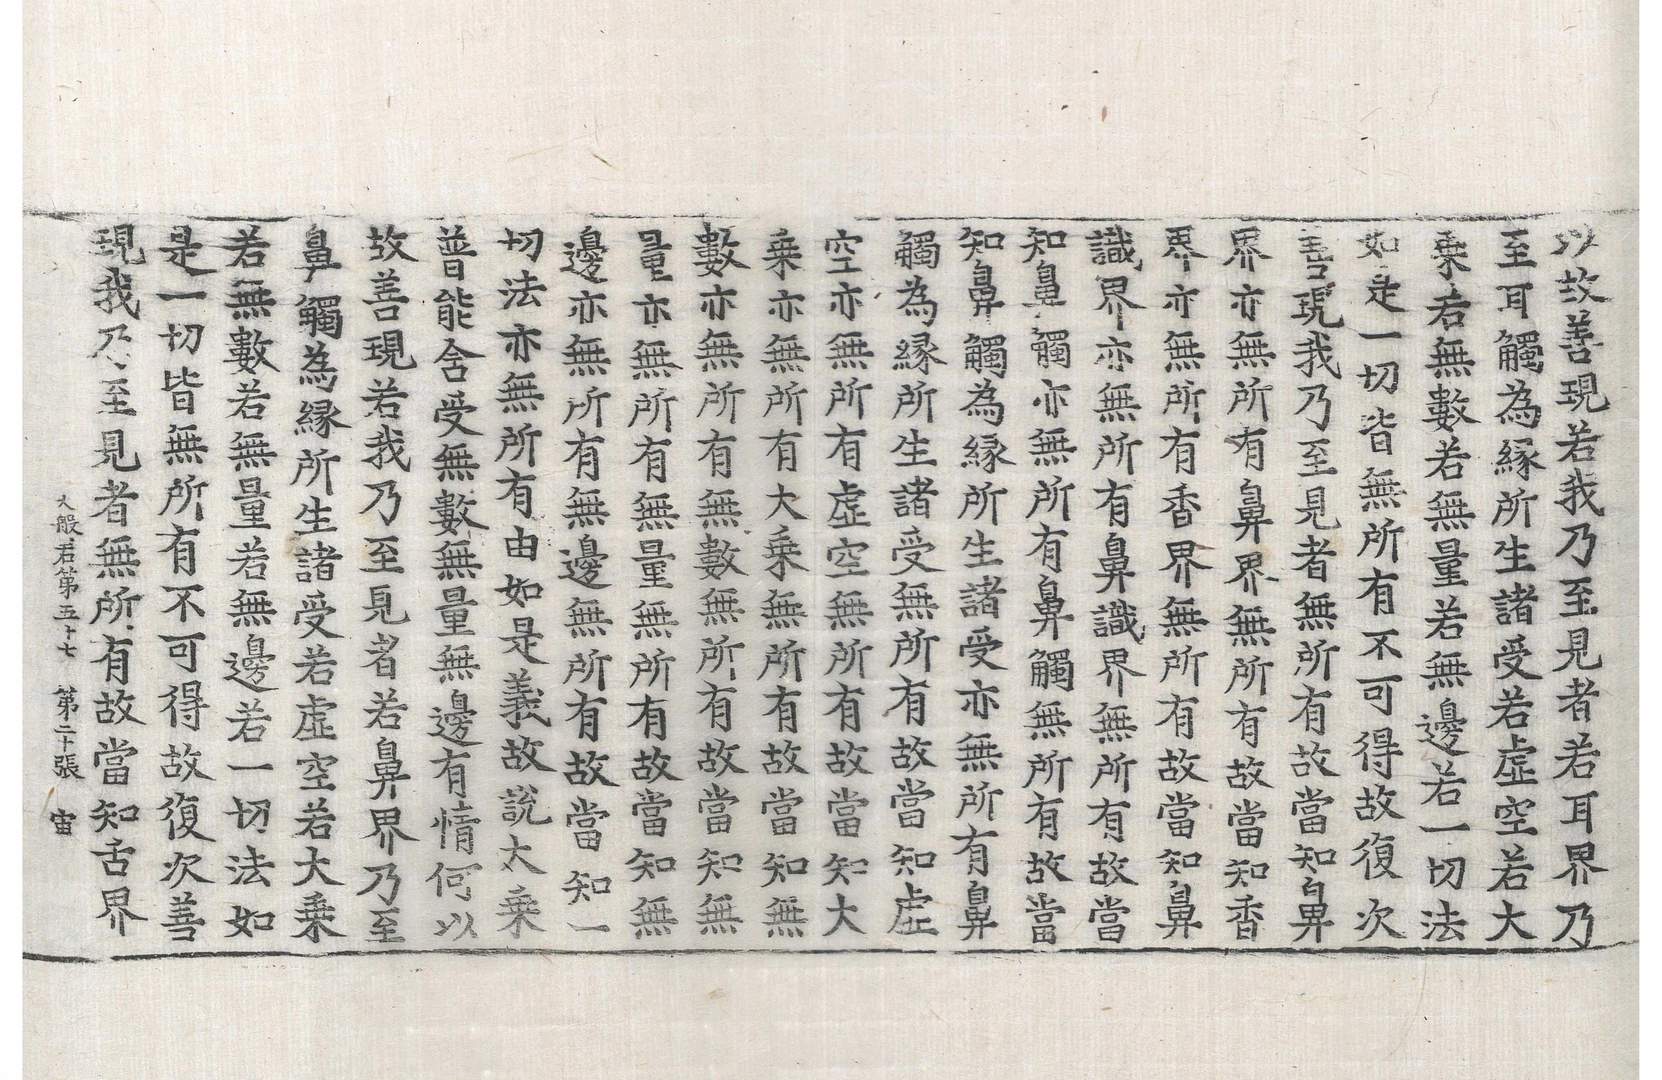 以故善現若我乃至見者若耳界乃
至耳觸為緣所生諸受若虛空若大
乘若無數若無量若無邊若一切法
如是一切皆無所有不可得故復次
善現我乃至見者無所有故當知鼻
界亦無所有鼻界無所有故當知香
界亦無所有香界無所有故當知鼻
識界亦無所有鼻識界無所有故當
知鼻觸亦無所有鼻觸無所有故當
知鼻觸為緣所生諸受亦無所有鼻
觸為緣所生諸受無所有故當知虛
空亦無所有虛空無所有故當知大
乘亦無所有大乘無所有故當知無
數亦無所有無數無所有故當知無
量亦無所有無量無所有故當知無
邊亦無所有無邊無所有故當知一
切法亦無所有由如是義故說大乘
普能含受無數無量無邊有情何以
故善現若我乃至見者若鼻界乃至
鼻觸為緣所生諸受若虛空若大乘
若無數若無量若無邊若一切法如
是一切皆無所有不可得故復次善
現我乃至見者無所有故當知舌界
大般若第五十七 第二十張 宙